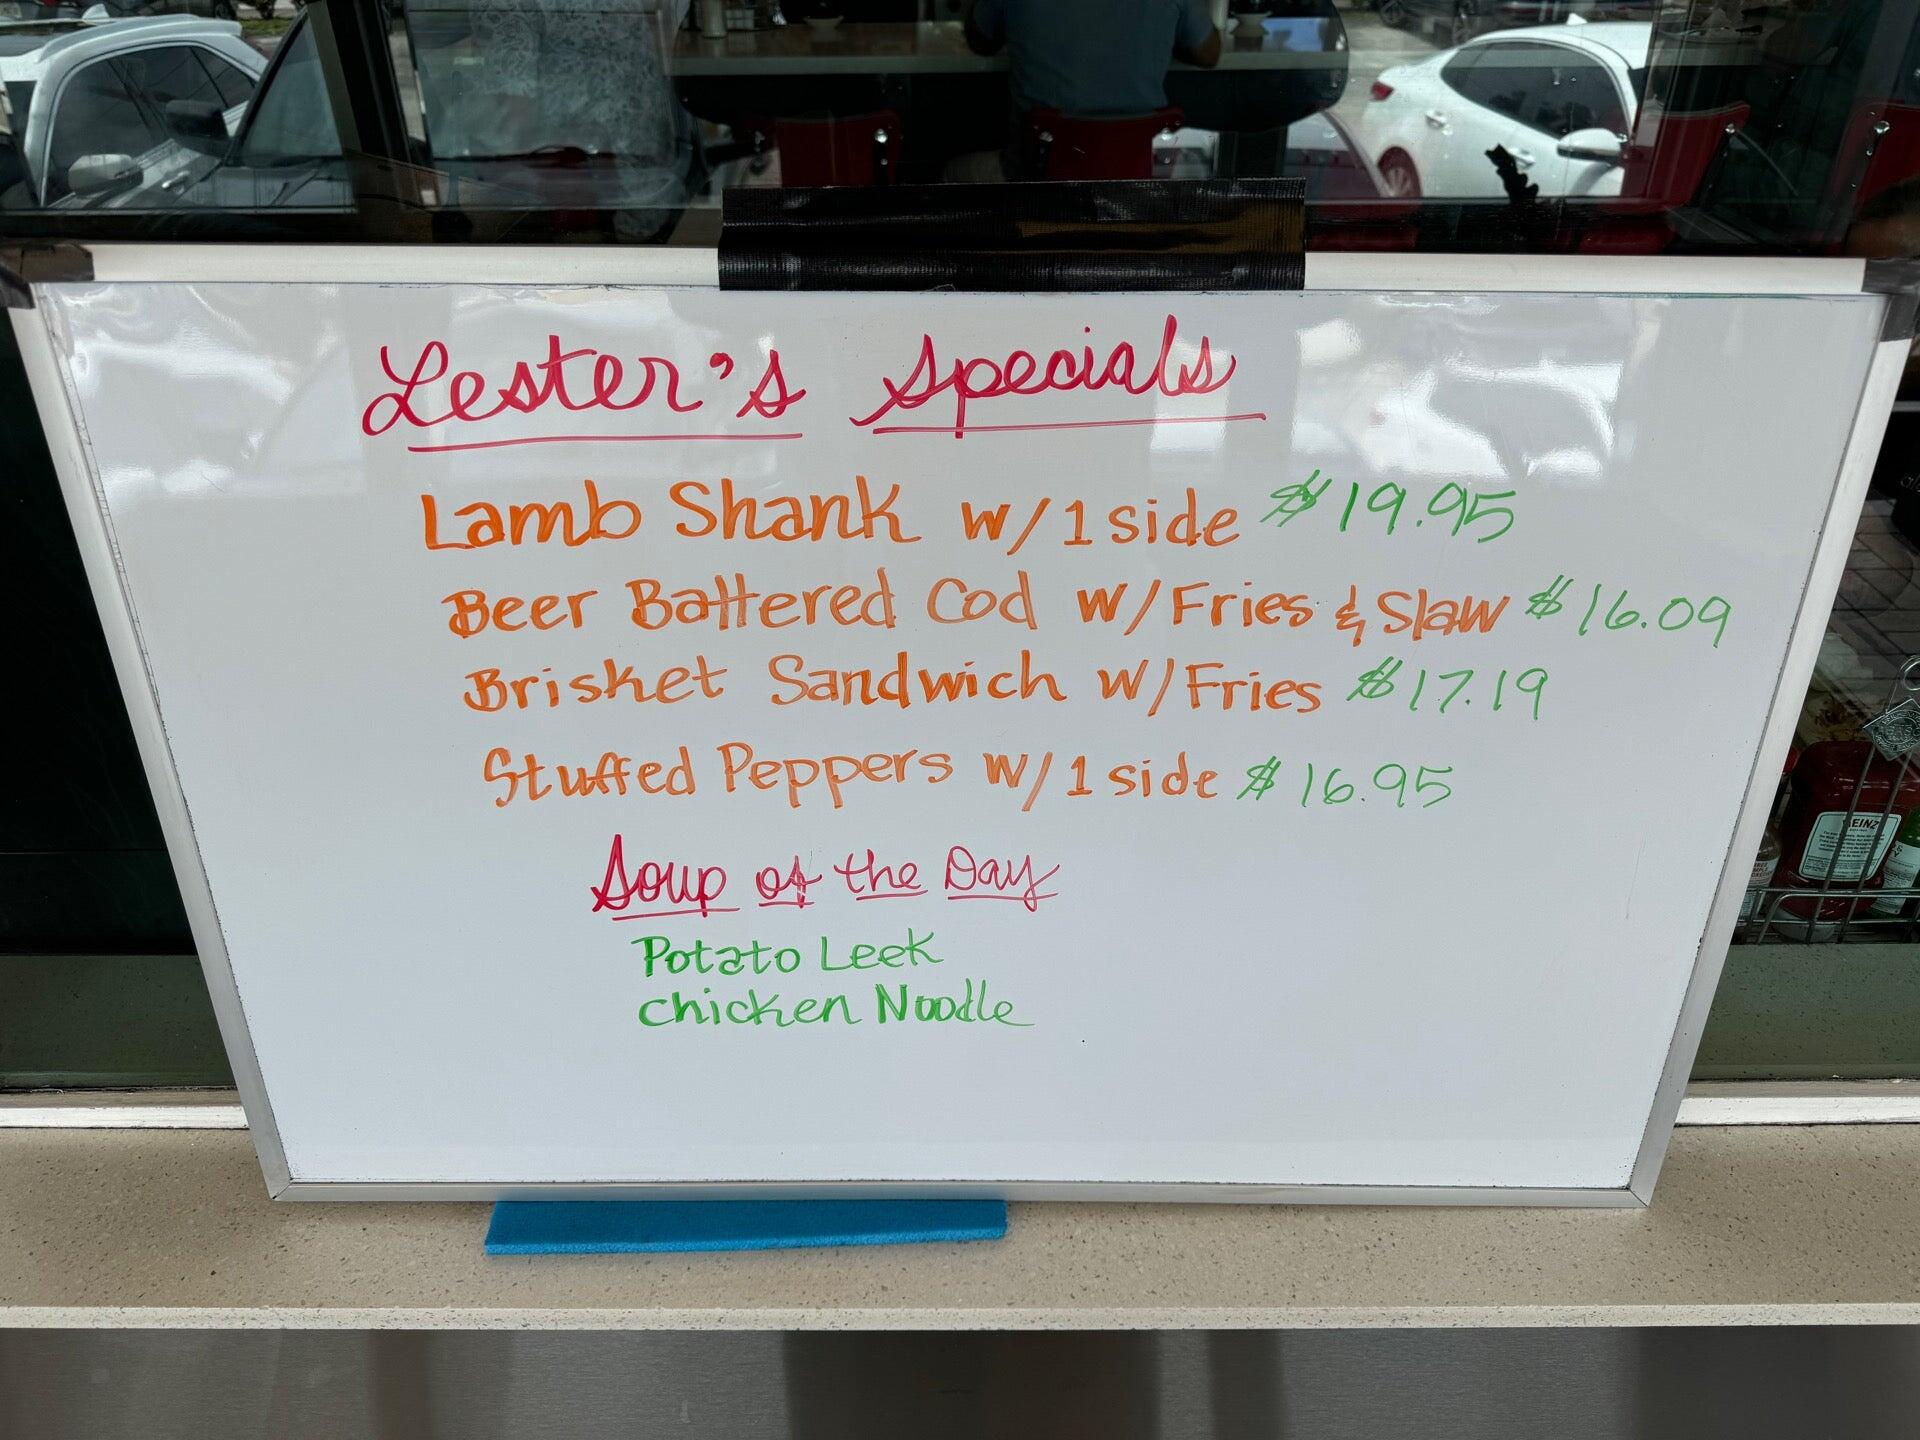 Lester's Specials
Lamb Shank w/1 side $19.95
Beer Battered Cod w/Fries & Slaw $16.09
Brisket Sandwich w/Fries $17.19
Stuffed Peppers w/1 side $16.95
Soup of the Day
Potato Leek
Chicken Noodle
HEINZ